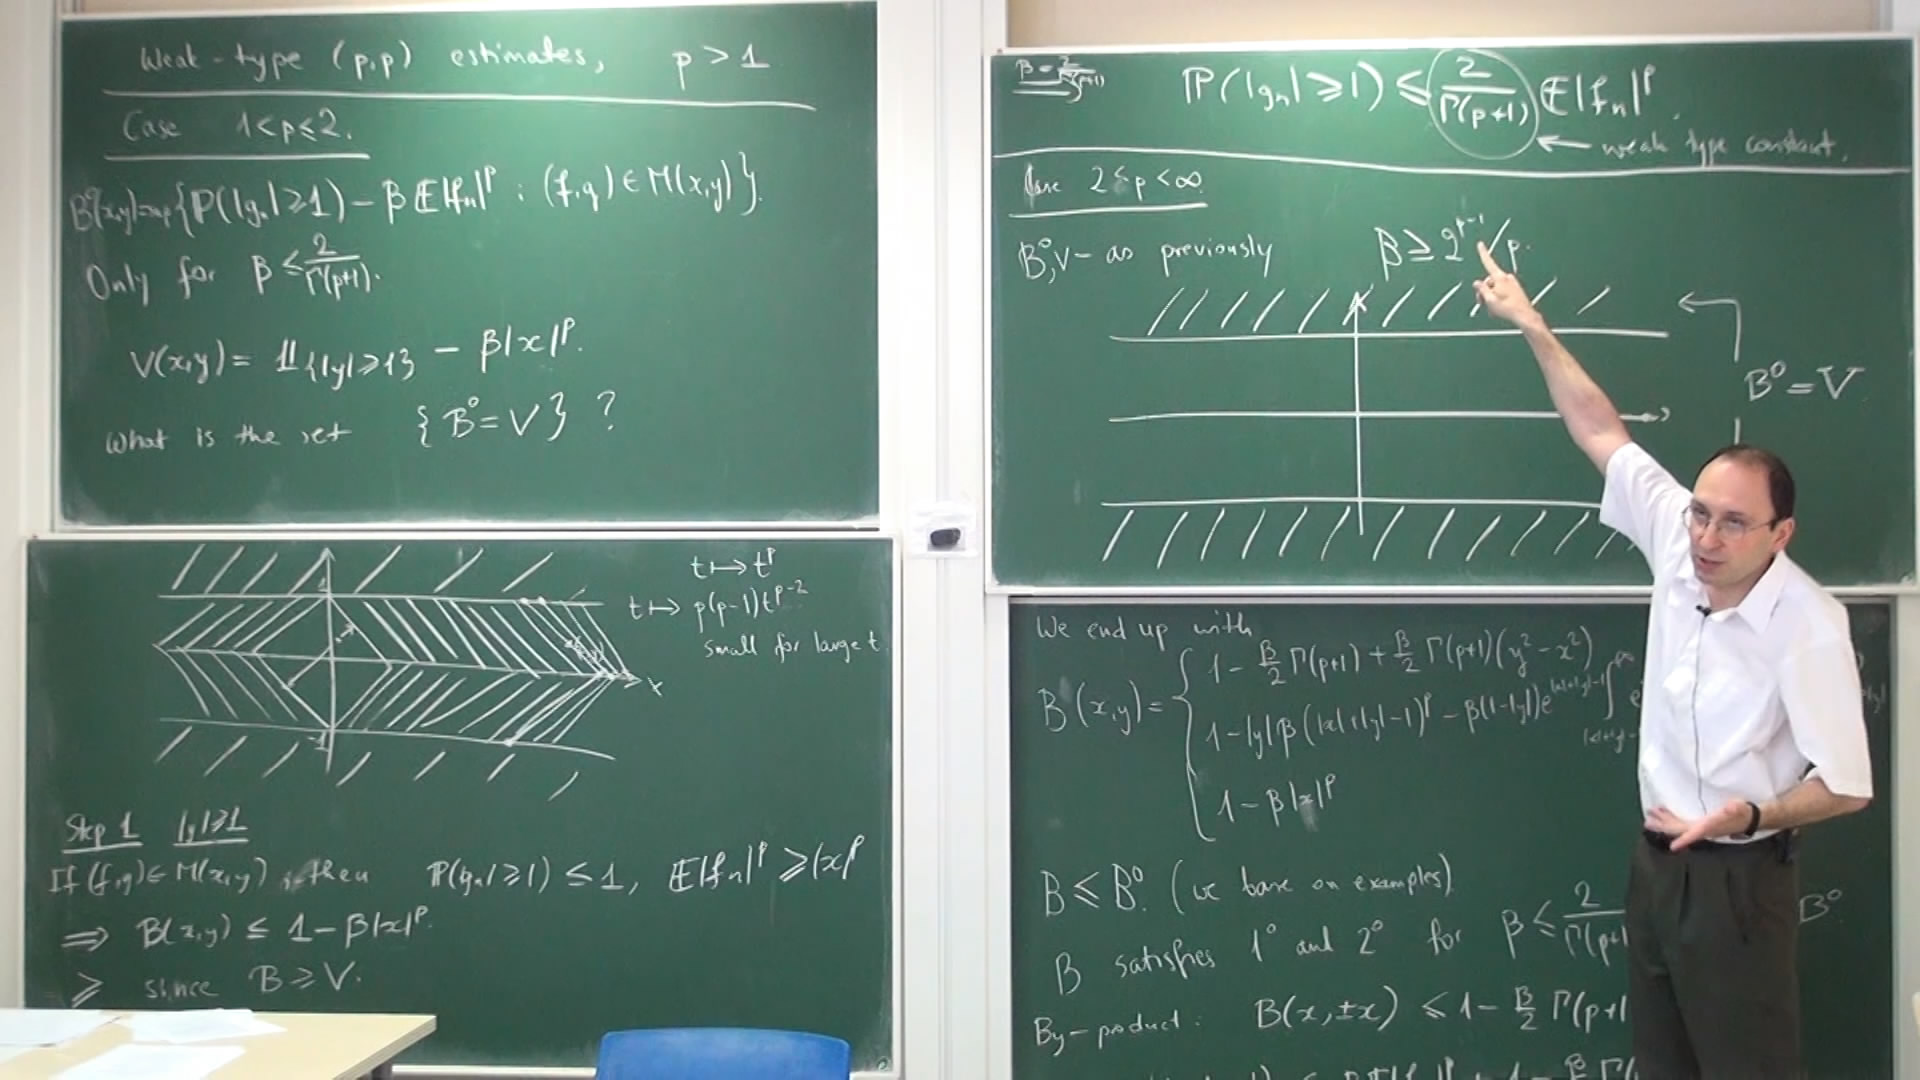 Weak-type (p,p) estimates, p > 1
Case 1<p≤2.
B⁰(x,y)=sup{ℙ(|gₙ|≥1) − β 𝔼|fₙ|ᵖ : (f,g) ∈ M(x,y)}.
Only for β ≤ 2/Γ(p+1).
V(x,y) = 𝟙{|y|≥1} − β|x|ᵖ.
What is the set {B⁰=V} ?
1
-1
x
t ↦ tᵖ
t ↦ p(p-1)tᵖ⁻²
small for large t
Step 1 |y|≥1
If (f,g)∈ M(x,y), then ℙ(|gₙ|≥1) ≤ 1, 𝔼|fₙ|ᵖ ≥ |x|ᵖ
⇒ B(x,y) ≤ 1 − β|x|ᵖ.
≥ since B ≥ V.
β = 2/Γ(p+1) ⇒ ℙ(|gₙ|≥1) ≤ 2/Γ(p+1) 𝔼|fₙ|ᵖ.
← weak type constant.
Case 2≤p<∞.
B⁰,V − as previously β ≥ 2ᵖ⁻¹/p.
B⁰=V
We end up with
B(x,y) = { 1 − β/2 Γ(p+1) + β/2 Γ(p+1)(y²−x²)
1−|y| β(|x|+|y|−1)ᵖ − β(1−|y|)e
1 − β|x|ᵖ
B ≤ B⁰. (we base on examples)
B satisfies 1° and 2° for β ≤ 2/Γ(p+1 B⁰
By-product: B(x,±x) ≤ 1− β/2 Γ(p+1